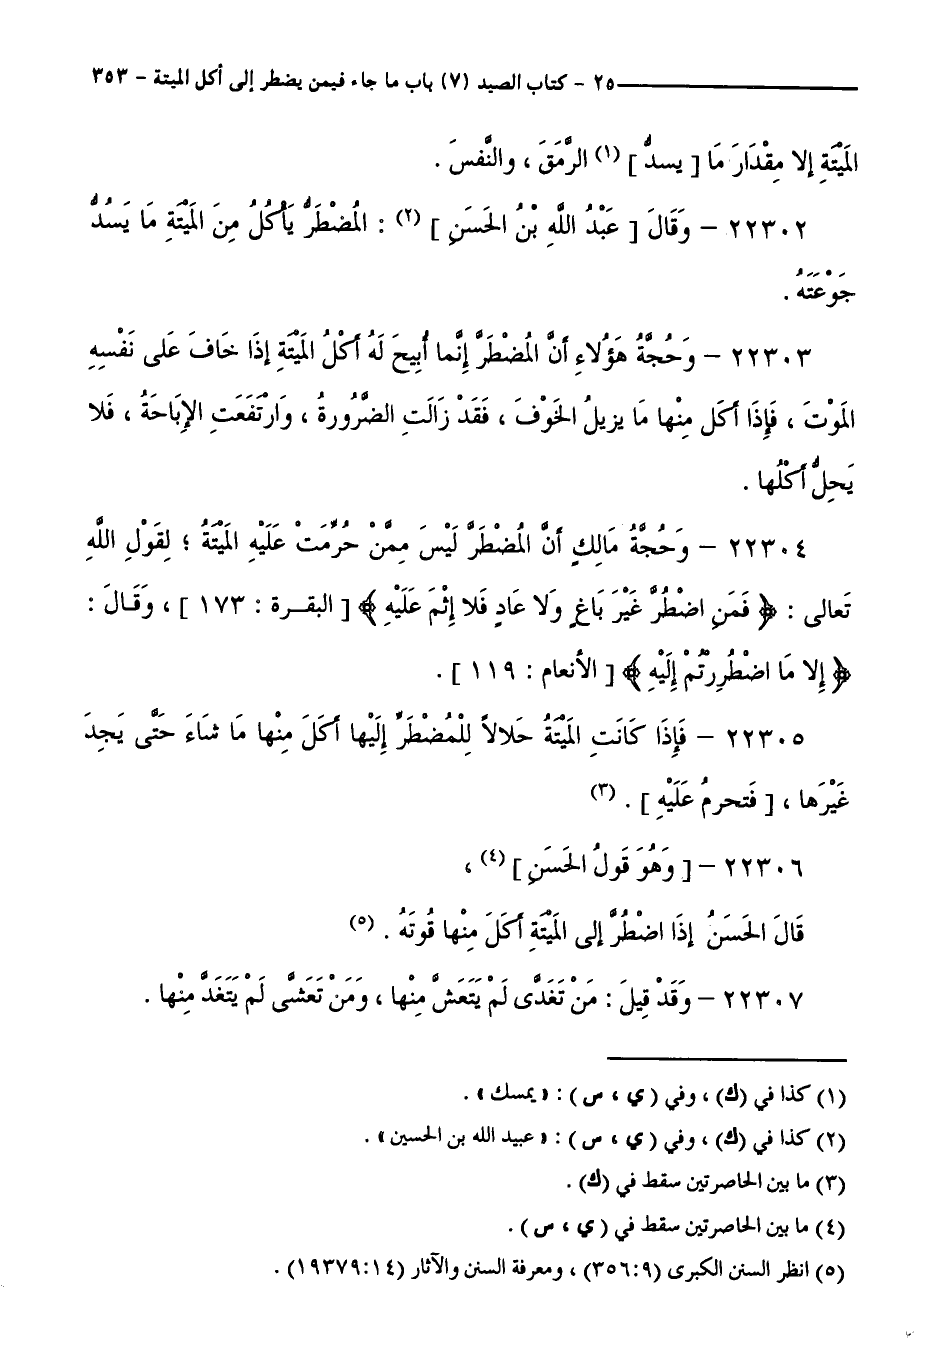 ٢٥ - كتاب الصيد (٧) باب ما جاء فيمن يضطر إلى أكل الميتة - ٣٥٣
المَيْتَةِ إلا مِقْدَارَ مَا [ يسدُّ ] (١) الرَّمَقَ ، والنَّفسَ .
٢٢٣٠٢ - وَقَالَ [ عَبْدُ اللَّهِ بْنُ الحَسَنِ ] (٢) : المُضْطَرُّ يَأكُلُ مِنَ المَيْتَةِ مَا يَسُدُّ
جَوْعَتَهُ .
٢٢٣٠٣ - وَحُجَّةُ هَؤُلاءِ أَنَّ المُضْطَرَّ إِنَّما أُبِيحَ لَهُ أَكْلُ المَيْتَةِ إِذَا خَافَ عَلى نَفْسِهِ
المَوْتَ ، فَإِذَا أَكَل مِنْها مَا يزيلُ الخَوْفَ ، فَقَدْ زَالَتِ الضَّرُورةُ ، وَارْتَفَعَتِ الإِبَاحَةُ ، فَلا
يَحِلُّ أَكْلُها .
٢٢٣٠٤ - وَحُجَّةُ مَالِكٍ أَنَّ المُضْطَرَّ لَيْسَ مِمَّنْ حُرِّمَتْ عَلَيْهِ المَيْتَةُ ؛ لِقَوْلِ اللَّهِ
تَعالى : ﴿ فَمَنِ اضْطُرَّ غَيْرَ بَاغٍ وَلا عَادٍ فَلا إِثْمَ عَلَيْهِ ﴾ [ البقرة : ١٧٣ ] ، وَقَالَ :
﴿ إِلا مَا اضْطُرِرْتُمْ إِلَيْهِ ﴾ [ الأنعام : ١١٩ ] .
٢٢٣٠٥ - فَإِذَا كَانَتِ المَيْتَةُ حَلالاً لِلْمُضْطَرِّ إِلَيْها أَكَلَ مِنْها مَا شاءَ حَتَّى يَجِدَ
غَيْرَها ، [ فَتحرمُ عَلَيْهِ ] . (٣)
٢٢٣٠٦ - [ وَهُوَ قَولُ الحَسَنِ ] (٤) ،
قَالَ الحَسَنُ إِذَا اضْطُرَّ إِلى المَيْتَةِ أَكَلَ مِنْها قُوتَهُ . (٥)
٢٢٣٠٧ - وَقَدْ قِيلَ : مَنْ تَغَدَّى لَمْ يَتَعَشَّ مِنْها ، وَمَنْ تَعَشَّى لَمْ يَتَغَدَّ مِنْها .
(١) كذا في (ك) ، وفي ( ي ، س ) : « يمسك » .
(٢) كذا في (ك) ، وفي ( ي ، س ) : « عبيد الله بن الحسين » .
(٣) ما بين الحاصرتين سقط في (ك) .
(٤) ما بين الحاصرتين سقط في ( ي ، س ) .
(٥) انظر السنن الكبرى (٩:٣٥٦) ، ومعرفة السنن والآثار (١٤:١٩٣٧٩) .